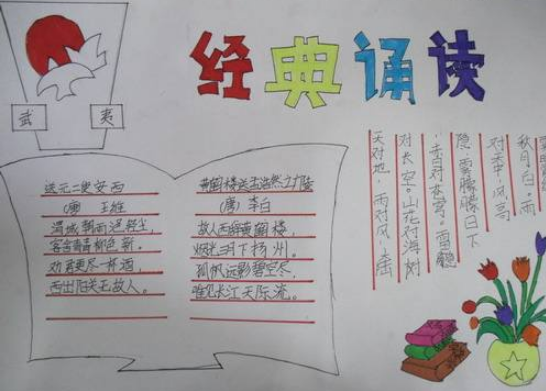 经典诵读
武夷
送元二使安西
(唐) 王维
渭城朝雨浥轻尘，
客舍青青柳色新。
劝君更尽一杯酒，
西出阳关无故人。
黄鹤楼送孟浩然之广陵
(唐) 李白
故人西辞黄鹤楼，
烟花三月下扬州。
孤帆远影碧空尽，
唯见长江天际流。
天对地，雨对风。大陆
对长空。山花对海树
赤日对苍穹。雷隐
隐，雾朦朦。日下
对天中，风高
秋月白，雨